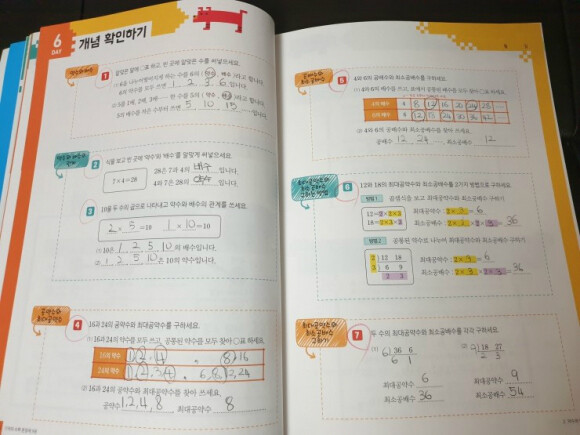 6
DAY
개념 확인하기
약수와 배수
1 알맞은 말에 ○표 하고, 빈 곳에 알맞은 수를 써넣으세요.
(1) 6을 나누어떨어지게 하는 수를 6의 (약수, 배수)라고 합니다.
6의 약수를 모두 쓰면 1 2 3 6 입니다.
(2) 5를 1배, 2배, 3배…… 한 수를 5의 (약수, 배수)라고 합니다.
5의 배수를 작은 수부터 쓰면 5 10 15 …입니다.
약수와 배수의 관계
2 식을 보고 빈 곳에 '약수'와 '배수'를 알맞게 써넣으세요.
7×4=28
28은 7과 4의 배수 입니다.
4와 7은 28의 약수 입니다.
3 10을 두 수의 곱으로 나타내고 약수와 배수의 관계를 쓰세요.
2 × 5 =10 1 × 10 =10
(1) 10은 1 2 5 10 의 배수입니다.
(2) 1 2 5 10 은 10의 약수입니다.
공약수와 최대공약수
4 16과 24의 공약수와 최대공약수를 구하세요.
(1) 16과 24의 약수를 모두 쓰고, 공통된 약수를 모두 찾아 ○표 하세요.
16의 약수 1, 2, 4, 8, 16
24의 약수 1, 2, 3, 4, 6, 8, 12, 24
(2) 16과 24의 공약수와 최대공약수를 찾아 쓰세요.
공약수 1, 2, 4, 8 최대공약수 8
공배수와 최소공배수
5 4와 6의 공배수와 최소공배수를 구하세요.
4의 배수 4 8 12 16 20 24 28
6의 배수 6 12 18 24 30 36 42
(2) 4와 6의 공배수와 최소공배수를 찾아 쓰세요.
공배수 12 24 최소공배수 12
최대공약수와 최소공배수 구하는 방법
6 12와 18의 최대공약수와 최소공배수를 2가지 방법으로 구하세요.
방법1 곱셈식을 보고 최대공약수와 최소공배수 구하기
12=2×2×3 최대공약수 2×3=6
18=2×3×3 최소공배수 2×3×2×3=36
방법2 공통된 약수로 나누어 최대공약수와 최소공배수 구하기
2 12 18 최대공약수 2×3=6
3 6 9 최소공배수 2×3×2×3=36
2 3
최대공약수와 최소공배수 구하기
7 두 수의 최대공약수와 최소공배수를 각각 구하세요.
(1) 6 36 6 (2) 9 18 27
6 1 2 3
최대공약수 6 최대공약수 9
최소공배수 36 최소공배수 54